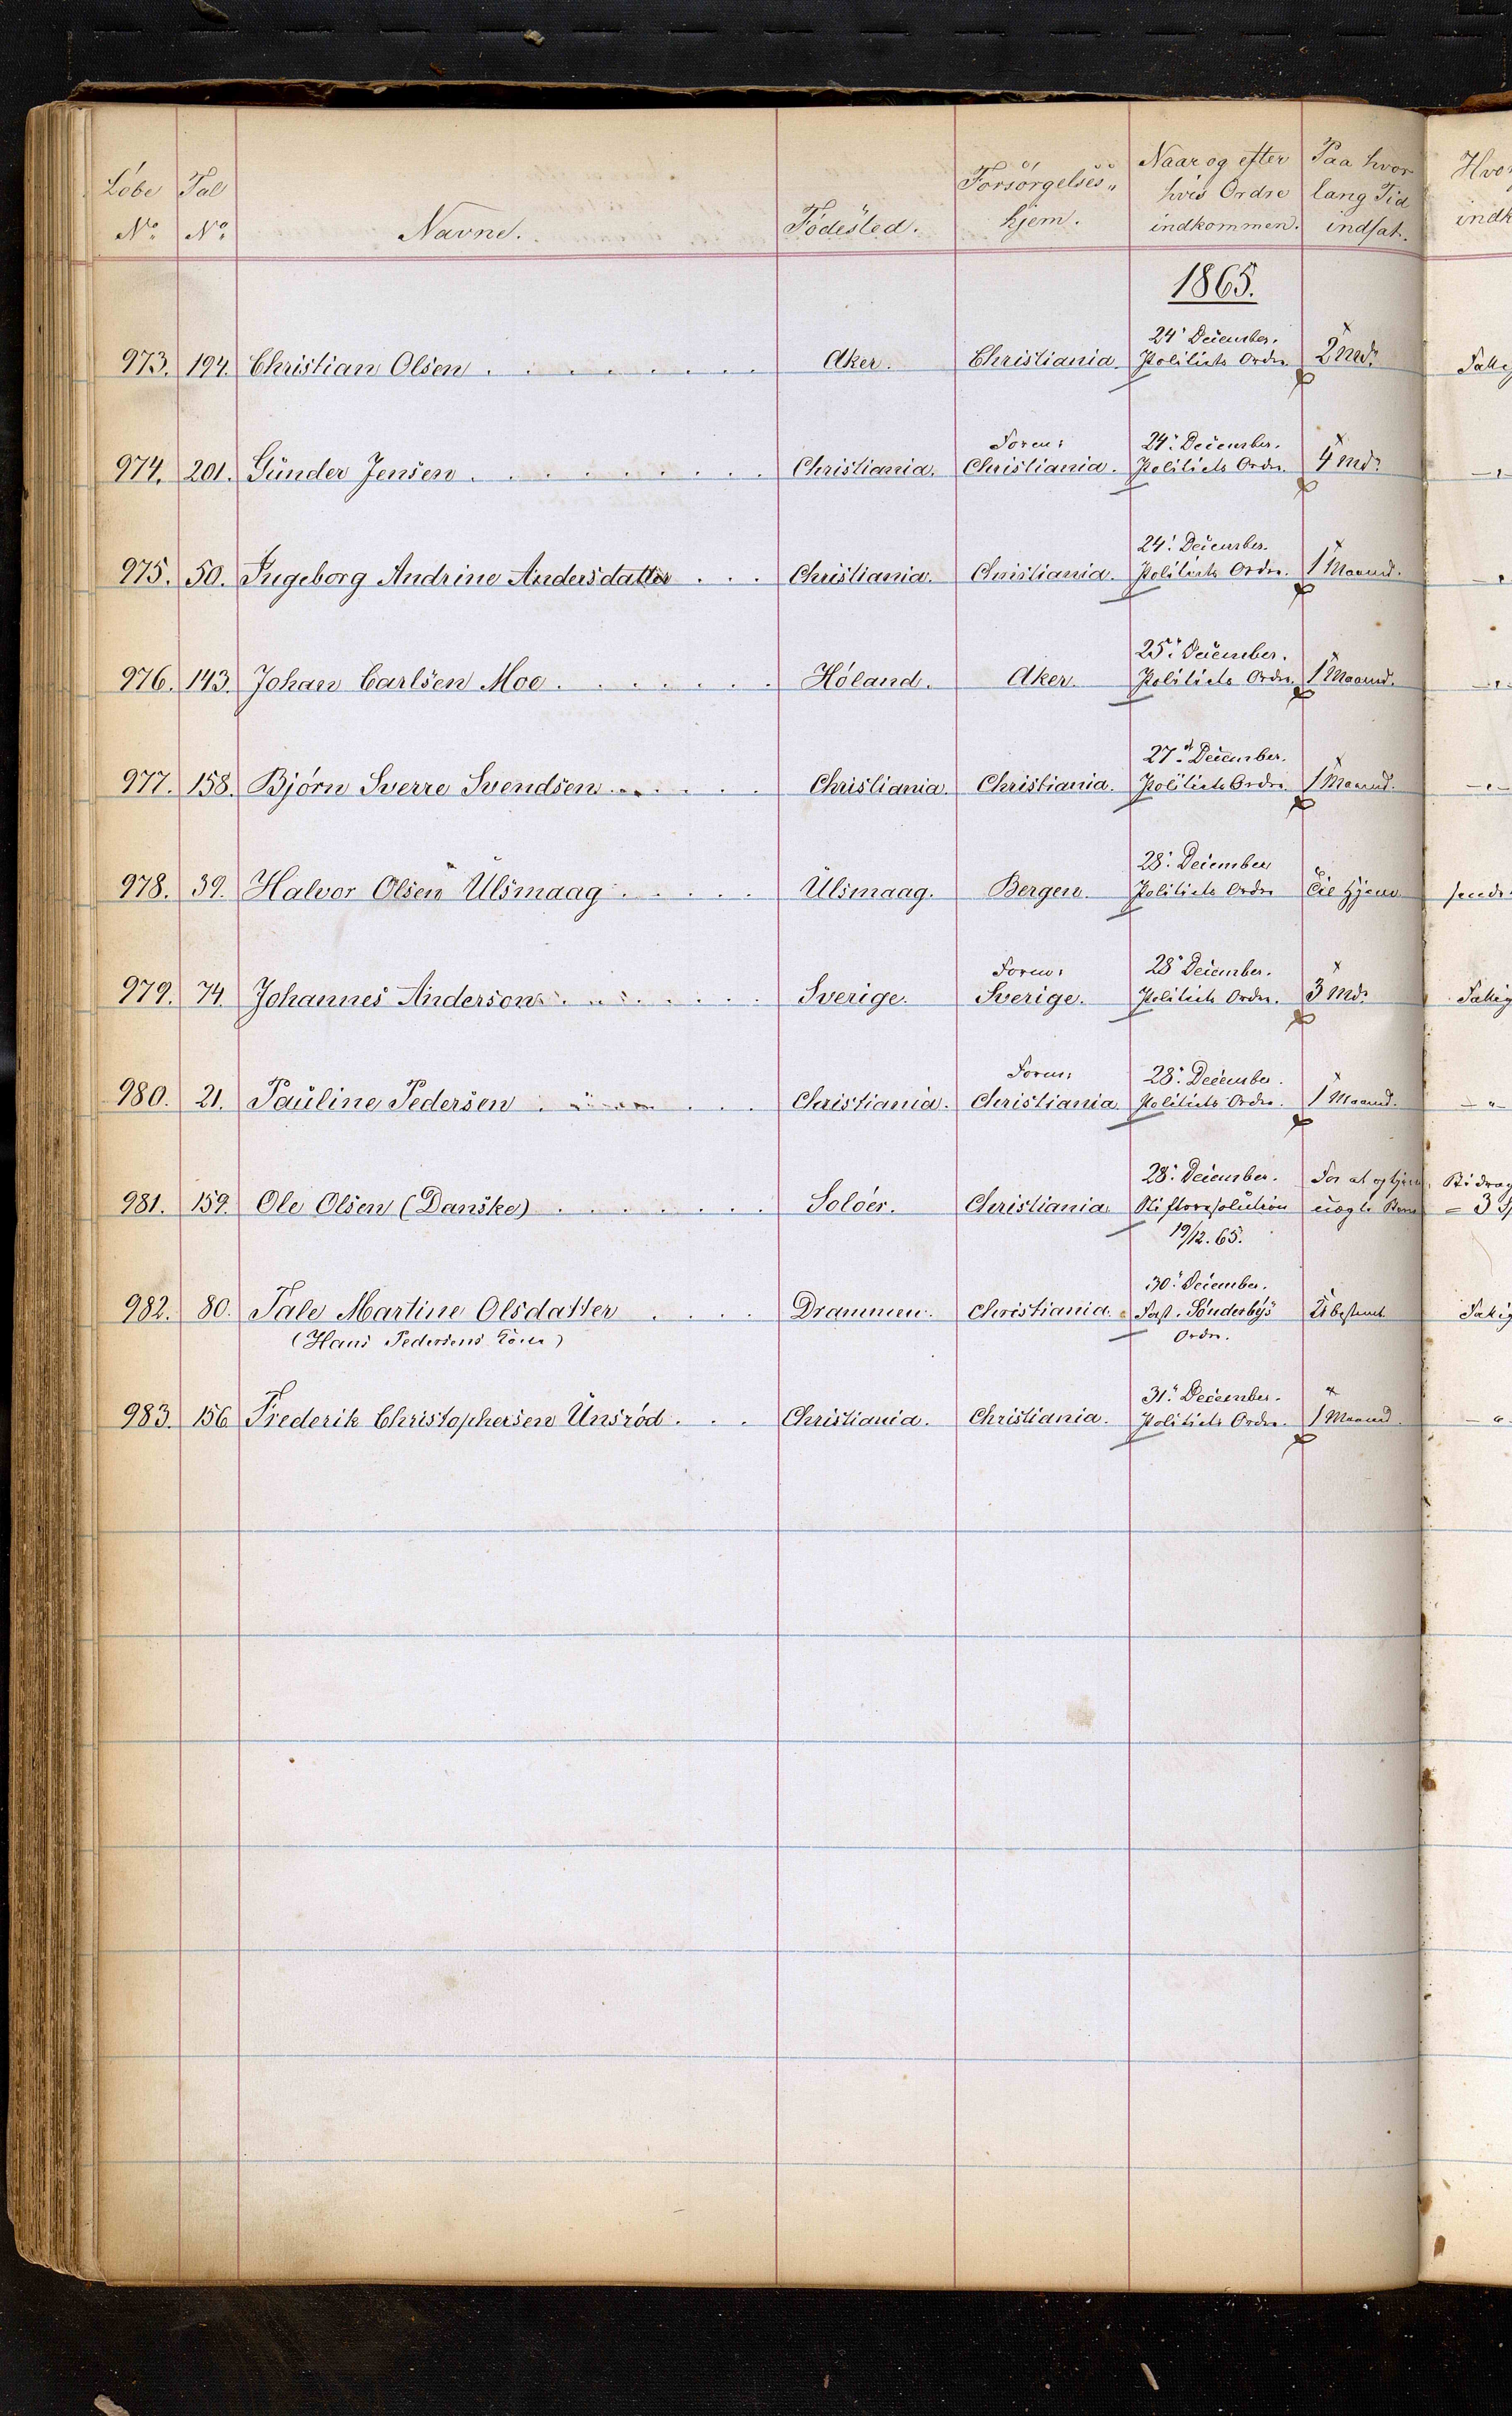 Løbe No. Tal No. Navne. Fødested. Forsørgelses„ hjem. Naar og efter hvis Ordre indkommen. Paa hvor lang Tid indsat.
1865.
973. 194. Christian Olsen Aker. Christiania. 24' December. Politiets Ordre. 2 Mdr
974. 201. Gunder Jensen Christiania. Foren: Christiania. 24' December. Politiets Ordre. 4 Mdr
975. 50. Ingeborg Andrine Andersdatter Christiania. Christiania. 24' December. Politiets Ordre. 1 Maaned.
976. 143. Johan Carlsen Moe Høland. Aker. 25' December. Politiets Ordre. 1 Maaned.
977. 158. Bjørn Sverre Svendsen Christiania. Christiania. 27' December. Politiets Ordre. 1 Maaned.
978. 39. Halvor Olsen Ulsmaag Ulsmaag. Bergen. 28' December Politiets Ordre Til Hjem
979. 74. Johannes Anderson Sverige. Foren: Sverige. 28' December. Politiets Ordre. 3 Mdr
980. 21. Pauline Pedersen Christiania. Foren: Christiania 28' December. Politiets Ordre. 1 Maaned.
981. 159. Ole Olsen (Danske) Soløer. Christiania. 28' December. Stiftsresolution 19/12. 65. For at optjene
982. 80. Tale Martine Olsdatter Drammen. Christiania. 30' December. Fast. Sønderbys Ordre. Ubestemt
(Hans Pedersens Kone)
983. 156 Frederik Christophersen Unsrød Christiania. Christiania. 31' December. Politiets Ordre. 1 Maaned.